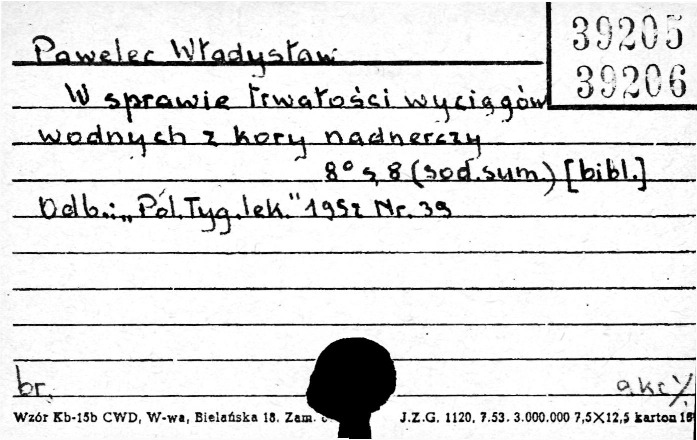 Pawelec Władysław
39205
39206
W sprawie trwałości wyciągów
wodnych z kory nadnerczy
8° s, 8 (sod. sum.) [bibl.]
Odb.: „Pol. Tyg. lek." 1952 Nr. 39
br.
akc
Wzór Kb-15b CWD, W-wa, Bielańska 18. Zam.
J.Z.G. 1120. 7.53. 3.000.000 7,5×12,5 karton